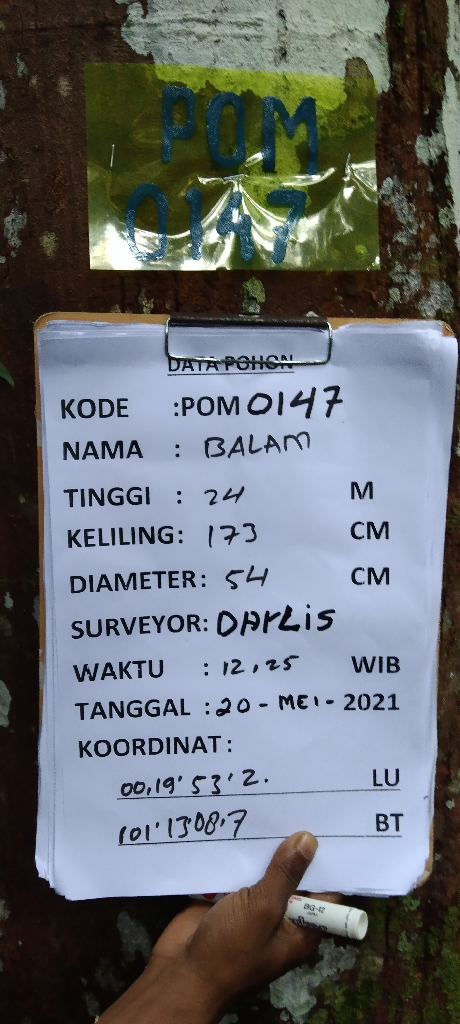 POM
0147
DATA POHON
KODE :POM 0147
NAMA : BALAM
TINGGI : 24 M
KELILING: 173 CM
DIAMETER: 54 CM
SURVEYOR: DARLIS
WAKTU : 12,25 WIB
TANGGAL :20 - MEI - 2021
KOORDINAT:
00,19'53'2. LU
101'13'08,7 BT
BG-12